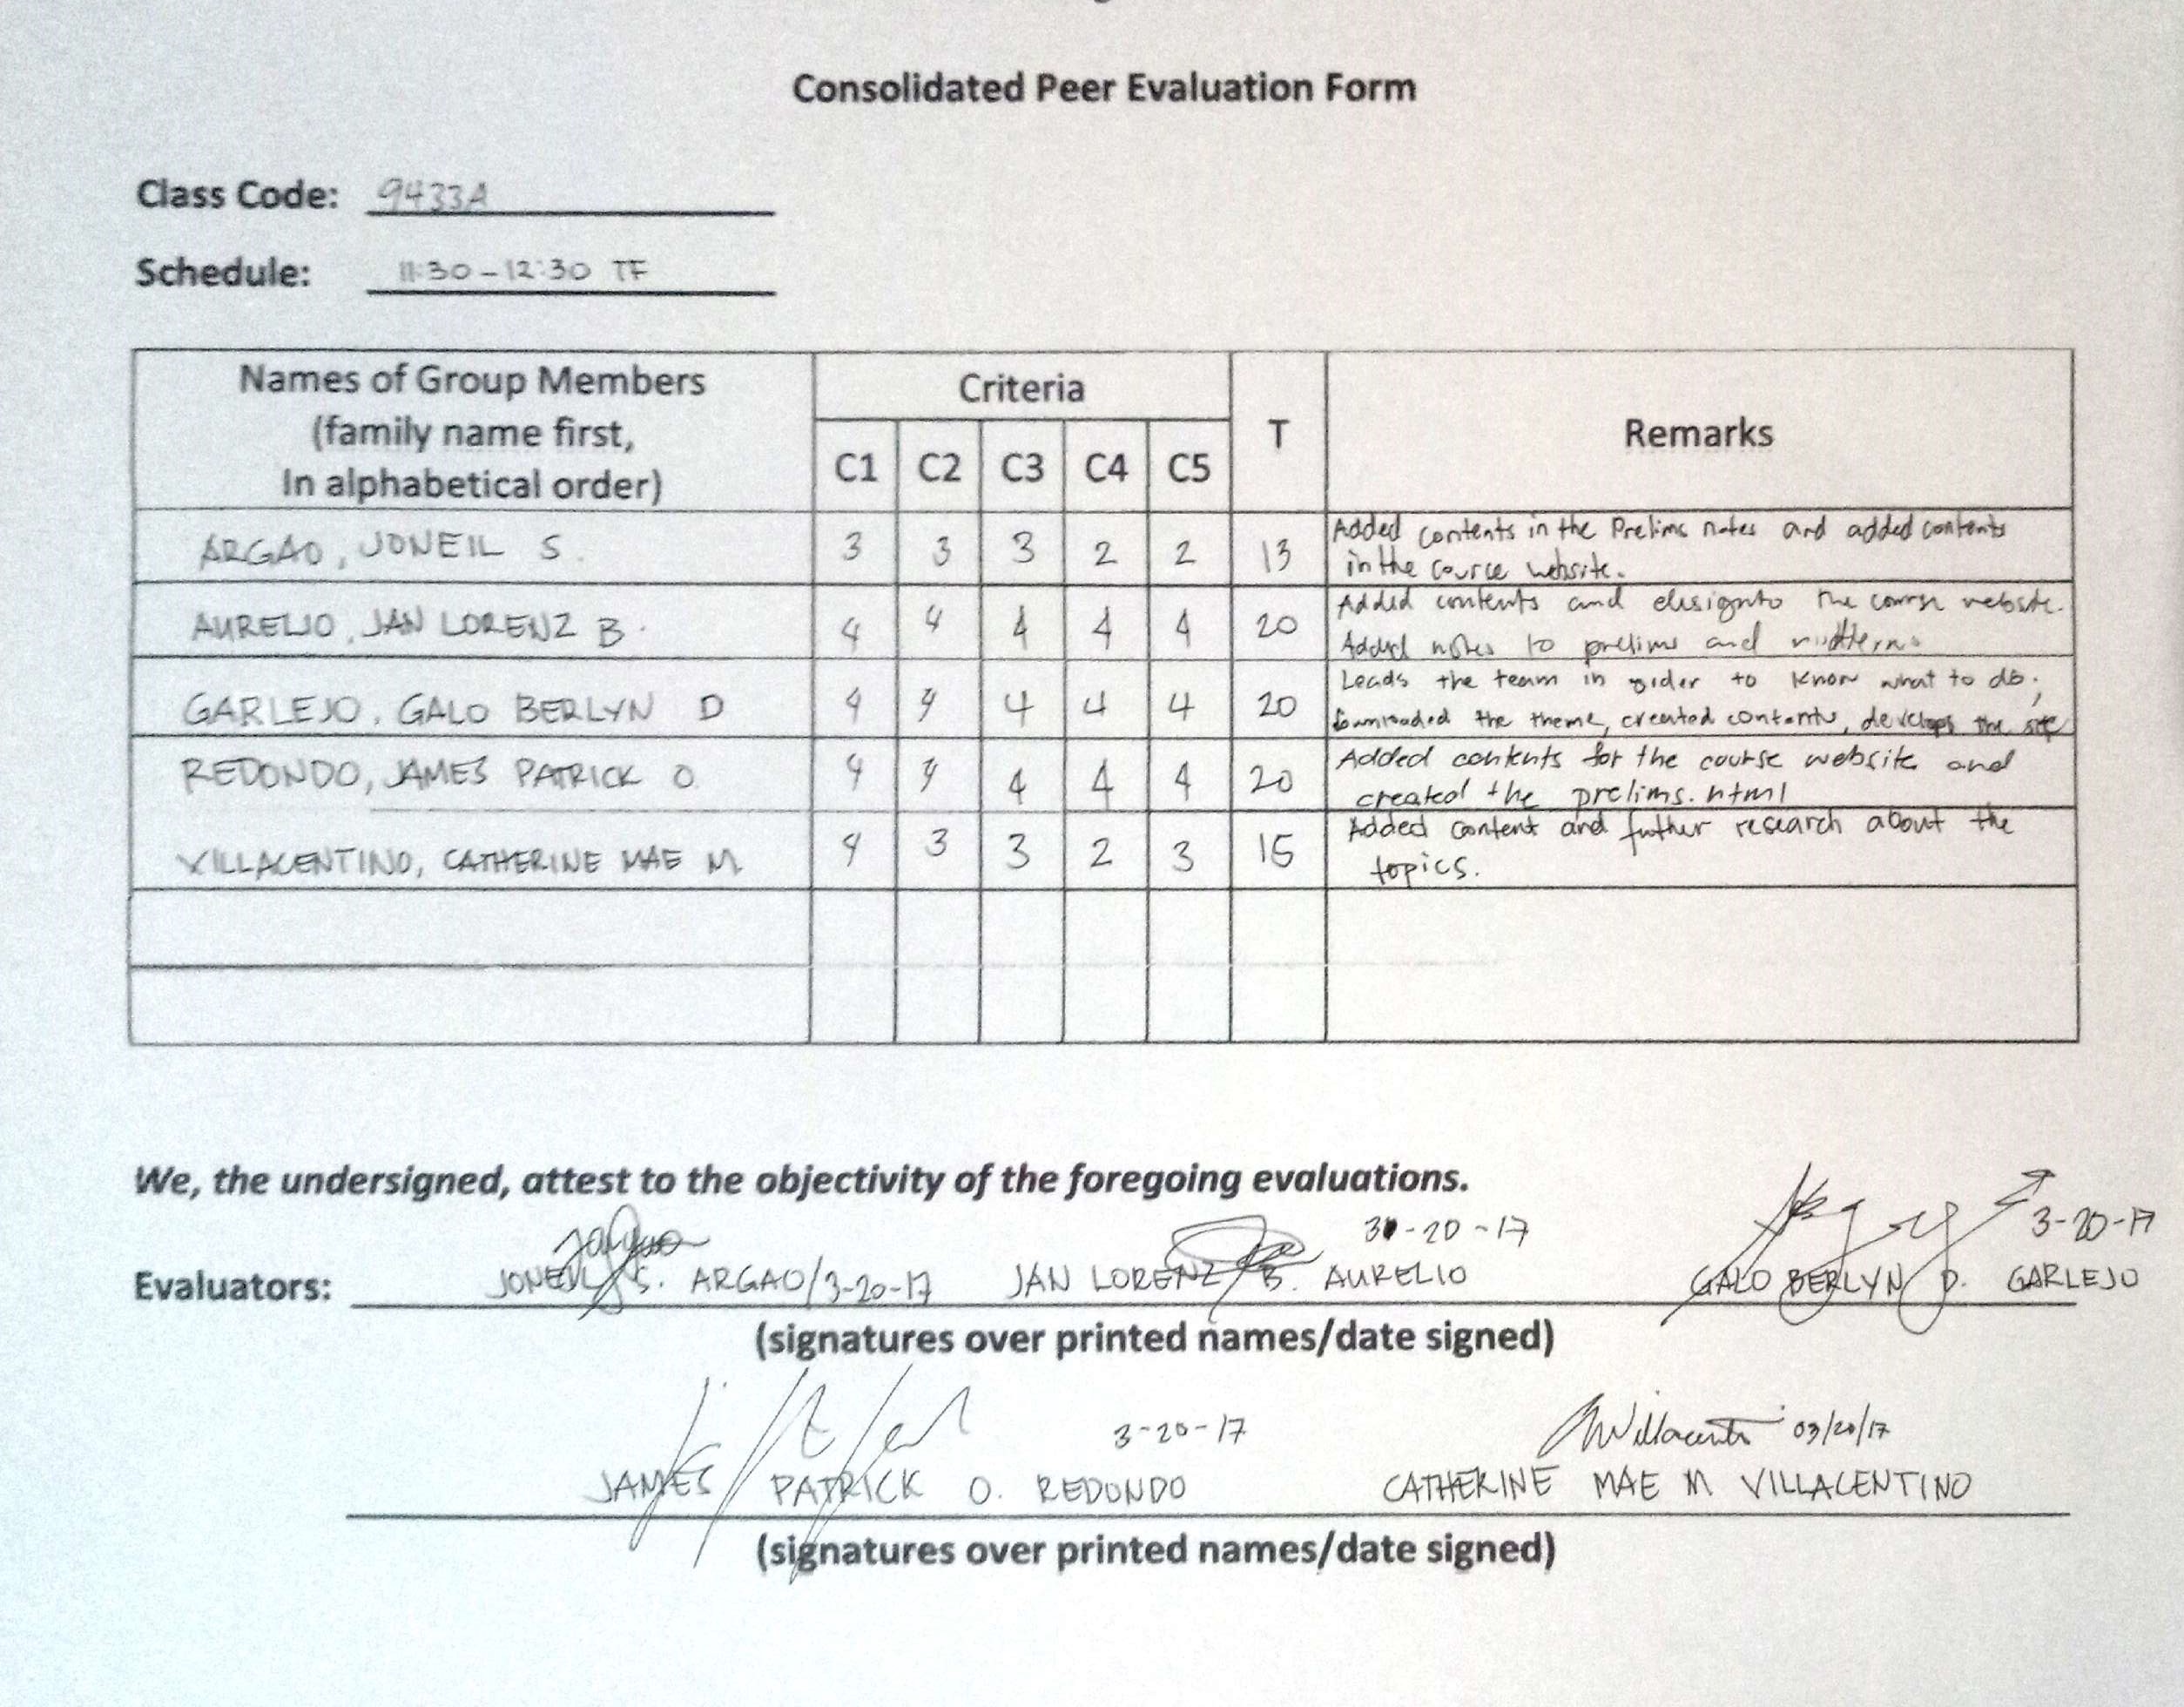 Consolidated Peer Evaluation Form
Class Code: 9433A
Schedule: 11:30-12:30 TF
Names of Group Members
(family name first,
In alphabetical order)
Criteria
T
Remarks
C1 C2 C3 C4 C5
ARGAO, JONEIL S. 3 3 3 2 2 13 Added contents in the Prelims notes and added contents
in the course website.
AURELIO, JAN LORENZ B. 4 4 4 4 4 20 Added contents and design to the course website.
Added notes to prelims and midterms
GARLEJO, GALO BERLYN D 4 4 4 4 4 20 Leads the team in order to know what to do;
downloaded the theme, created contents, develops the site
REDONDO, JAMES PATRICK O. 4 4 4 4 4 20 Added contents for the course website and
created the prelims.html
VILLACENTINO, CATHERINE MAE M. 4 3 3 2 3 15 Added content and futher research about the
topics.
We, the undersigned, attest to the objectivity of the foregoing evaluations.
3-20-17 3-20-17
Evaluators: JONEIL S. ARGAO/3-20-17 JAN LORENZ B. AURELIO GALO BERLYN D. GARLEJO
(signatures over printed names/date signed)
3-20-17 03/20/17
JAMES PATRICK O. REDONDO CATHERINE MAE M VILLACENTINO
(signatures over printed names/date signed)